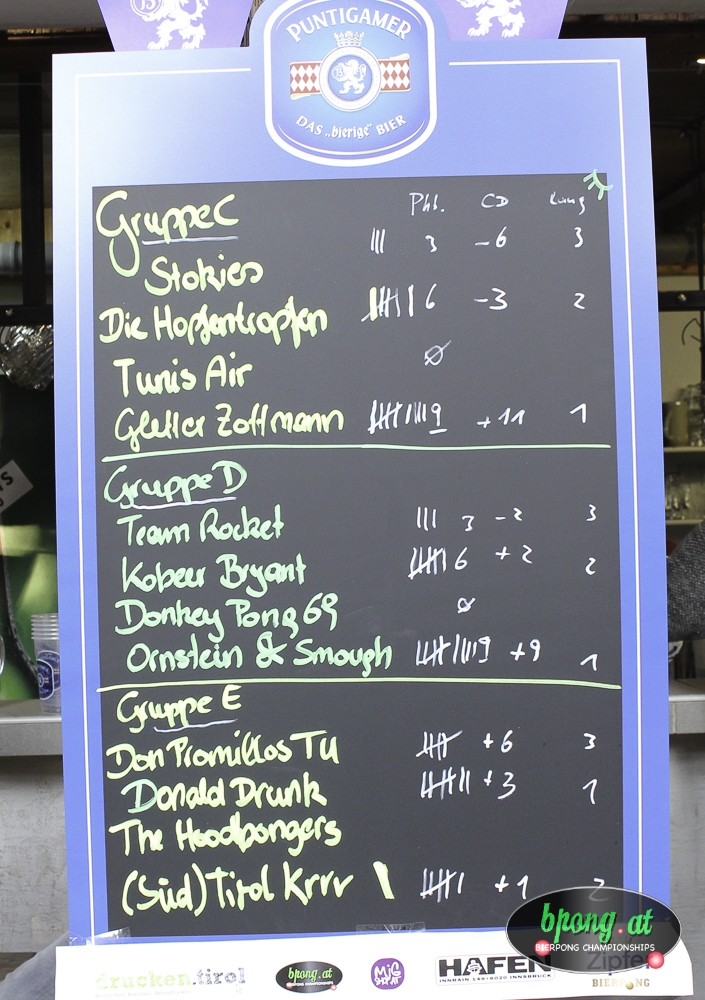 PUNTIGAMER
DAS „bierige“ BIER
Gruppe C Pkt. CD Rang
Stokies 3 -6 3
Die Hopfentropfen 6 -3 2
Tunis Air Ø
Gletter Zottmann 9 +11 1
Gruppe D
Team Rocket 3 -2 3
Kobeer Bryant 6 +2 2
Donkey Pong 69 Ø
Ornstein & Smough 9 +9 1
Gruppe E
Don Promillos TU +6 3
Donald Drunk +3 1
The Hoodpongers
(Süd)Tirol Krrr +1 2
bpong.at
BIERPONG CHAMPIONSHIPS
Zipfer
drucken.tirol
bpong.at
HAFEN
INNRAIN 149 · 6020 INNSBRUCK
BIERPONG